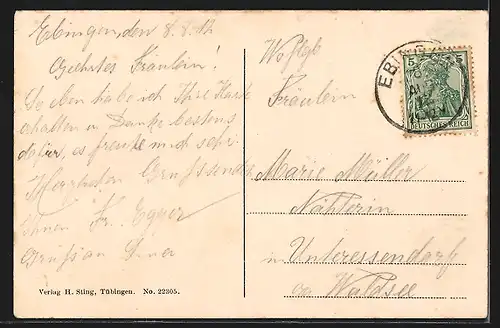 Ebingen, den 8. 8. 12
Geehrtes Fräulein!
So eben habe ich Ihre Karte
erhalten u Danke bestens
dafür, es freute mich sehr.
Herzlichen Grüss sendet
Ihnen Fr. Egger
Gruss an
Verlag H. Sting, Tübingen. No. 22305.
Wohlgb
Fräulein
Marie Müller
Nähterin
in Unteressendorf
oa Waldsee
EBINGEN
5 5
DEUTSCHES REICH